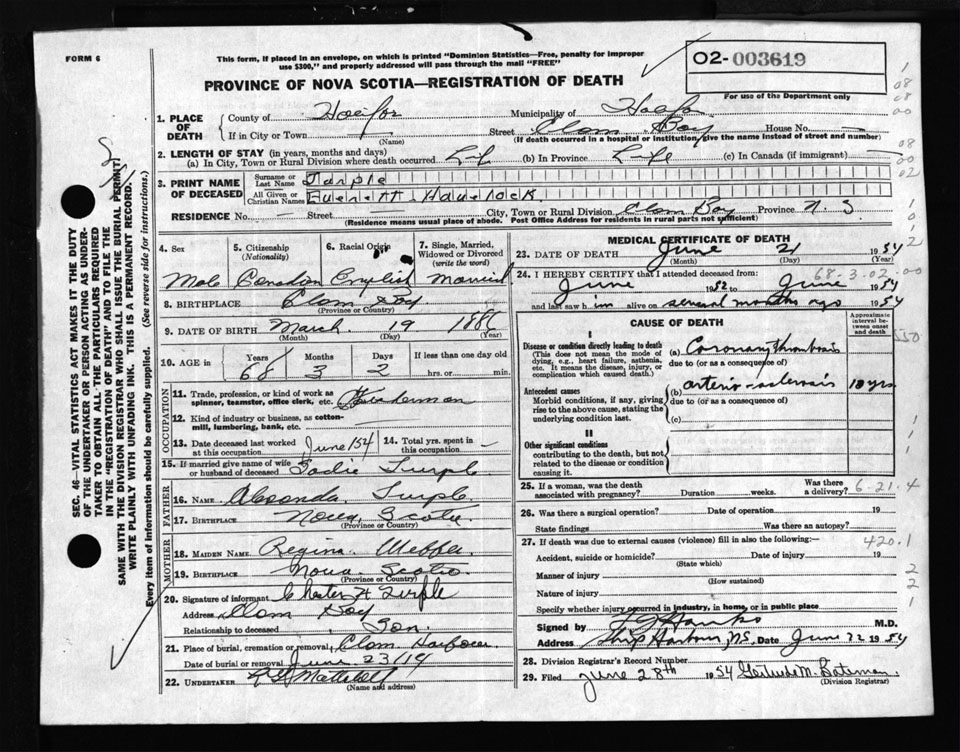 FORM 6
This form, if placed in an envelope, on which is printed "Dominion Statistics—Free, penalty for improper
use $300," and properly addressed will pass through the mail "FREE"
O2-003619
For use of the Department only
PROVINCE OF NOVA SCOTIA—REGISTRATION OF DEATH
1. PLACE OF DEATH
County of Halifax
Municipality of Halifax
If in City or Town —
(Name)
Street Clam Bay House No. —
(If death occurred in a hospital or institution, give the name instead of street and number)
2. LENGTH OF STAY (in years, months and days)
(a) In City, Town or Rural Division where death occurred Life (b) In Province Life (c) In Canada (if immigrant) —
3. PRINT NAME OF DECEASED
Surname or Last Name Turple
All Given or Christian Names Everett Havelock
RESIDENCE No. — Street City, Town or Rural Division Clam Bay Province N.S
(Residence means usual place of abode. Post Office Address for residents in rural parts not sufficient)
4. Sex
Male
5. Citizenship
(Nationality)
Canadian
6. Racial Origin
English
7. Single, Married, Widowed or Divorced
(write the word)
Married
8. BIRTHPLACE Clam Bay
(Province or Country)
9. DATE OF BIRTH March 19 1886
(Month) (Day) (Year)
10. AGE in
Years Months Days If less than one day old
68 3 2 hrs. or min.
OCCUPATION
11. Trade, profession, or kind of work as spinner, teamster, office clerk, etc.
12. Kind of industry or business, as cotton-mill, lumbering, bank, etc.
13. Date deceased last worked at this occupation June/54
14. Total yrs. spent in this occupation —
15. If married give name of wife or husband of deceased Sadie Turple
FATHER
16. NAME Turple
17. BIRTHPLACE Nova Scotia
(Province or Country)
MOTHER
18. MAIDEN NAME Regina
19. BIRTHPLACE Nova Scotia
(Province or Country)
20. Signature of informant Chester H Turple
Address Clam Bay
Relationship to deceased Son
21. Place of burial, cremation or removal Clam Harbour
Date of burial or removal June 23/19
22. UNDERTAKER
(Name and address)
MEDICAL CERTIFICATE OF DEATH
23. DATE OF DEATH June 21 1954
(Month) (Day)
68-3-02-00
24. I HEREBY CERTIFY that I attended deceased from:
June 1952 to June 1954
and last saw him alive on several months ago 1954
CAUSE OF DEATH
Approximate interval between onset and death
I
Disease or condition directly leading to death
(This does not mean the mode of dying, e.g., heart failure, asthenia, etc. It means the disease, injury, or complication which caused death.)
(a) Coronary thrombosis
due to (or as a consequence of)
Antecedent causes
Morbid conditions, if any, giving rise to the above cause, stating the underlying condition last.
(b) arterio-sclerosis 10 yrs.
due to (or as a consequence of)
(c)
II
Other significant conditions
contributing to the death, but not related to the disease or condition causing it.
25. If a woman, was the death associated with pregnancy? Duration weeks. Was there a delivery?
6-21-4
26. Was there a surgical operation? Date of operation 19
State findings Was there an autopsy?
27. If death was due to external causes (violence) fill in also the following:—
420.1
Accident, suicide or homicide? Date of injury 19
(State which)
Manner of injury
(How sustained)
Nature of injury
Specify whether injury occurred in industry, in home, or in public place
Signed by Hawks M.D.
Address Ship Harbour, NS. Date June 22 1954
28. Division Registrar's Record Number
29. Filed June 28th 1954 Gertrude M. Bateman
(Division Registrar)
SEC. 46—VITAL STATISTICS ACT MAKES IT THE DUTY
OF THE UNDERTAKER OR PERSON ACTING AS UNDER-
TAKER TO OBTAIN ALL THE PARTICULARS REQUIRED
IN THE "REGISTRATION OF DEATH" AND TO FILE THE
SAME WITH THE DIVISION REGISTRAR WHO SHALL ISSUE THE BURIAL PERMIT.
WRITE PLAINLY WITH UNFADING INK. THIS IS A PERMANENT RECORD.
Every item of information should be carefully supplied. (See reverse side for instructions.)